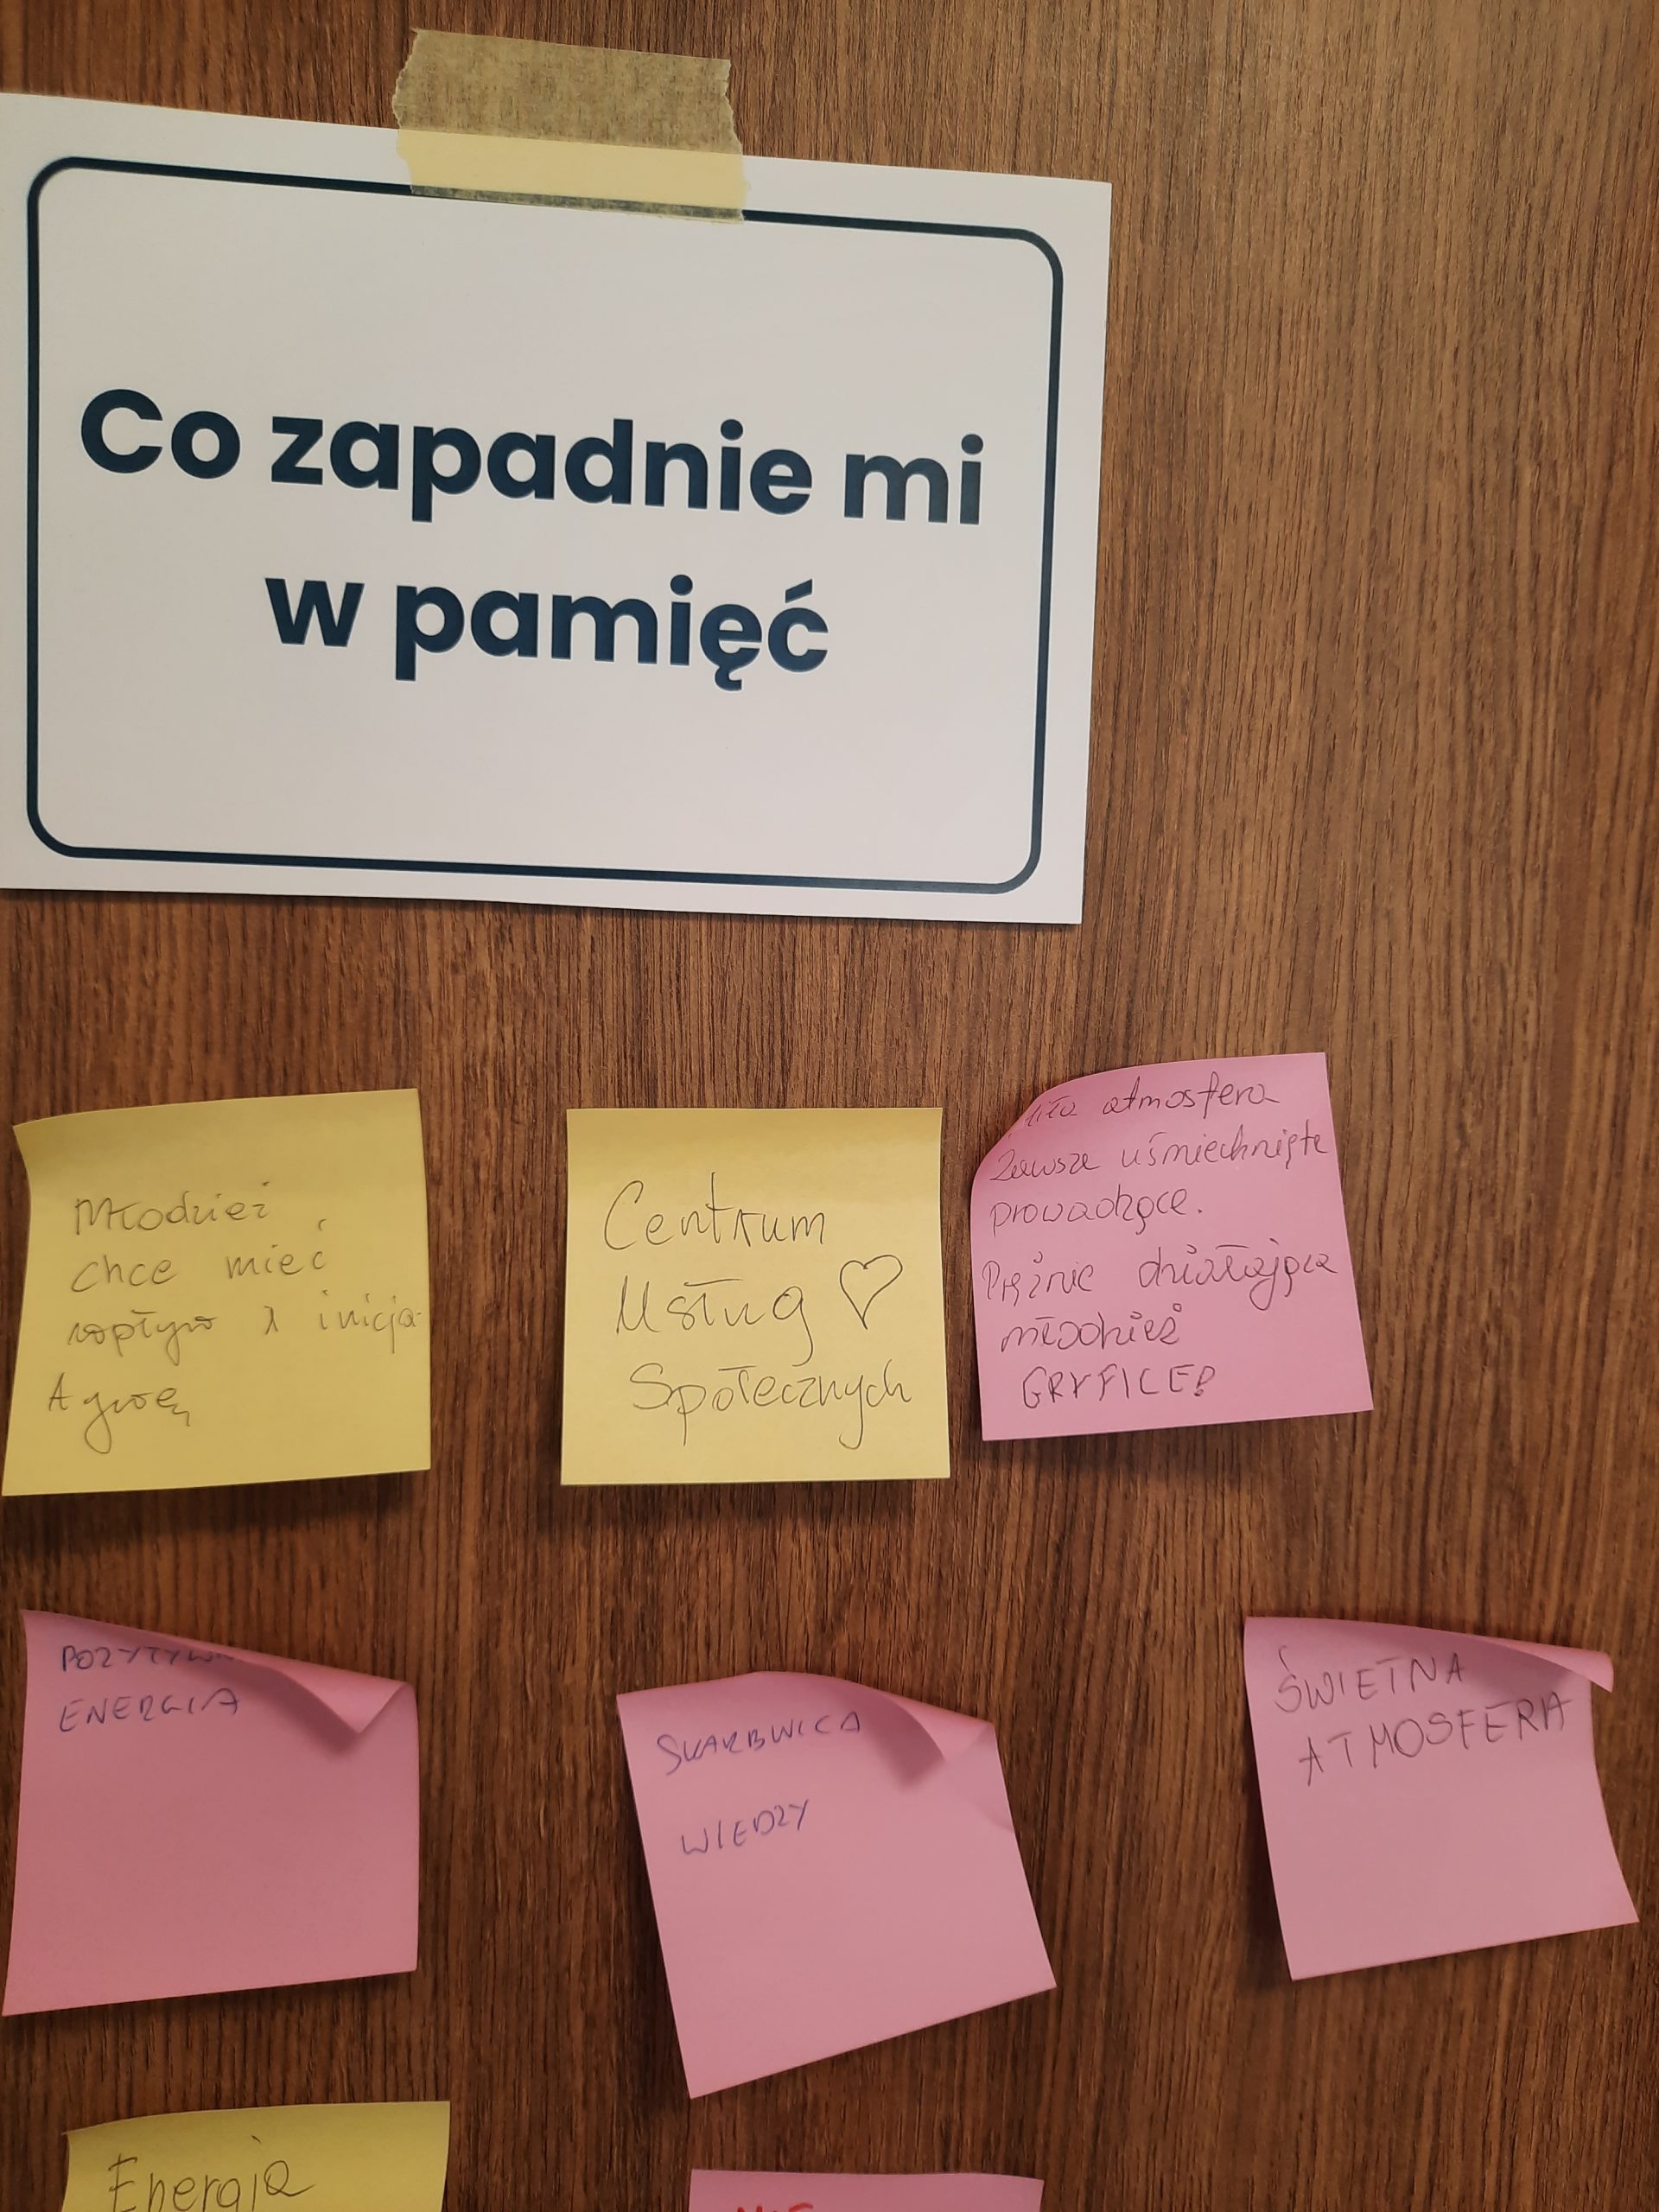 Co zapadnie mi
w pamięć
Młodzież
chce mieć
wpływ i inicja-
Centrum
Usług ♡
Społecznych
atmosfera
Zawsze uśmiechnięte
prowadzące.
Prężnie działająca
młodzież
GRYFICE!
ENERGIA
SKARBNICA
WIEDZY
ŚWIETNA
ATMOSFERA
Energia